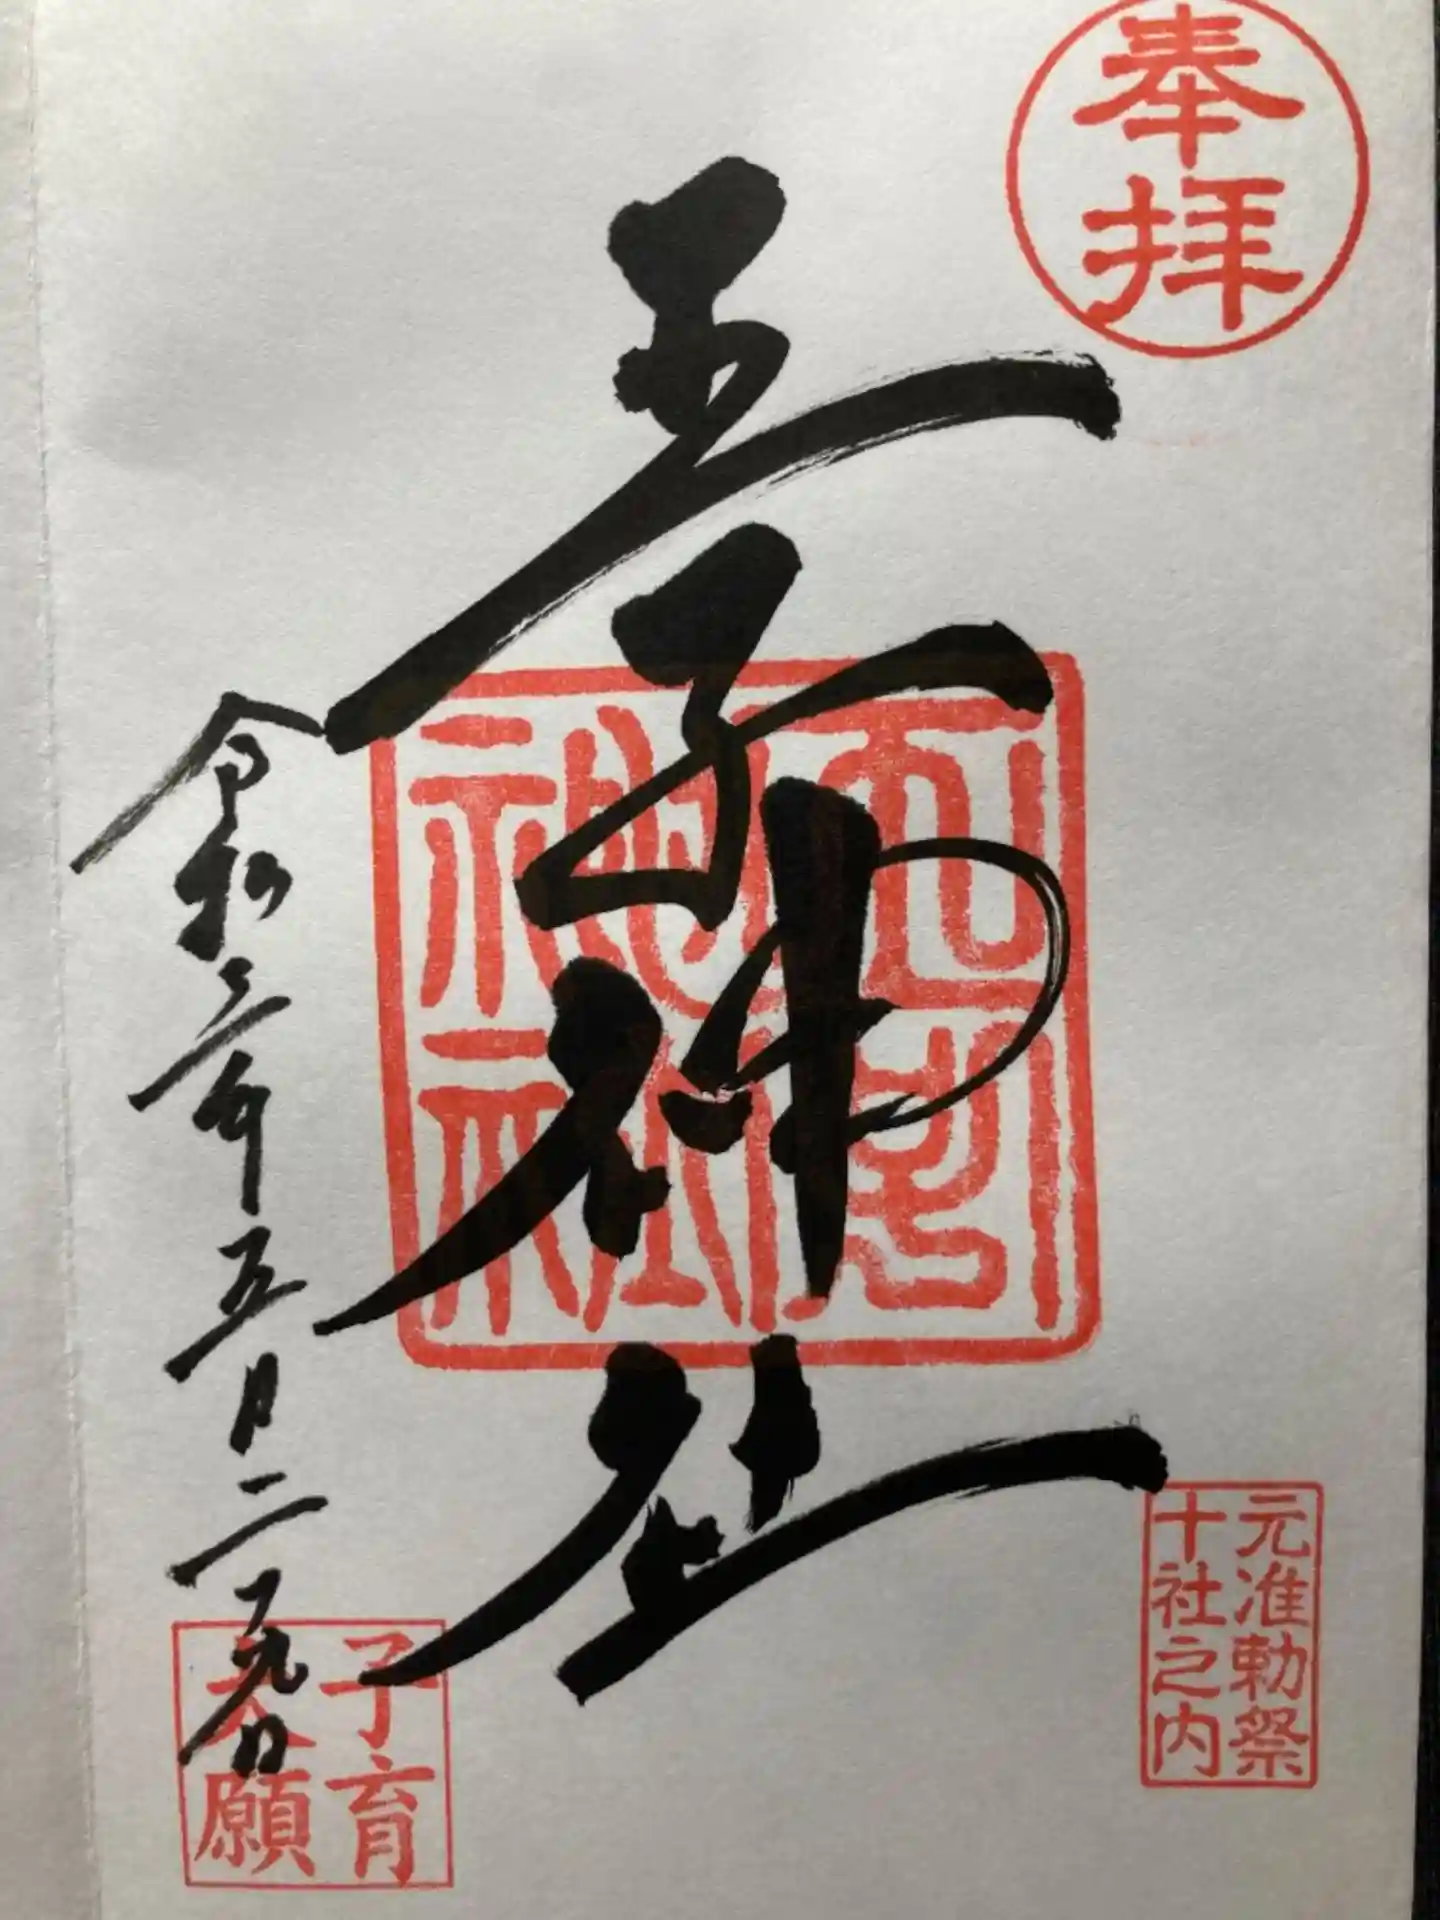 奉拝
王子神社
神社
元准勅祭
十社之内
令和三年五月二十九日
子育
大願